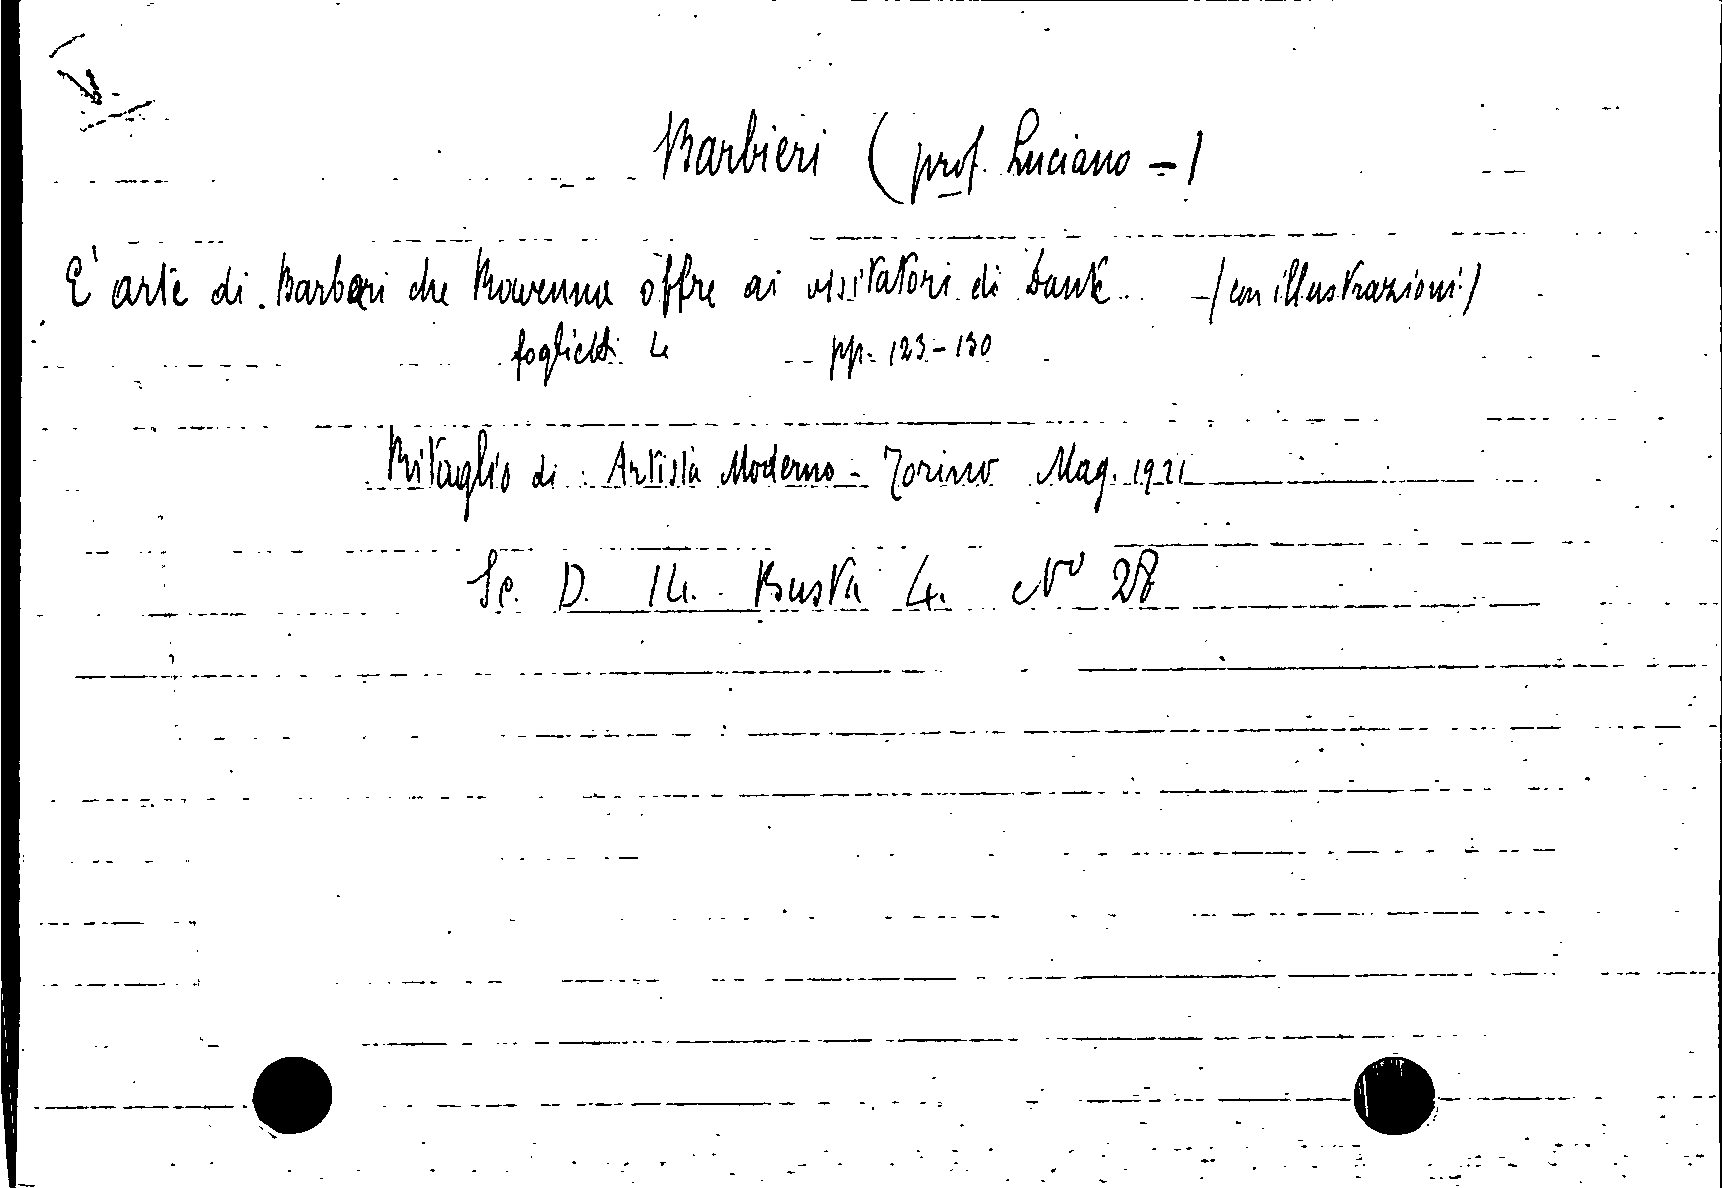 Barbieri (prof. Luciano -)
E' arte di Barbari che Ravenna offre ai visitatori di Dante - (con illustrazioni)
foglietti 4 pp. 123-130
Ritaglio di: Artista Moderno - Torino Mag. 1921
Sc. D. 14. Busta 4. No 28